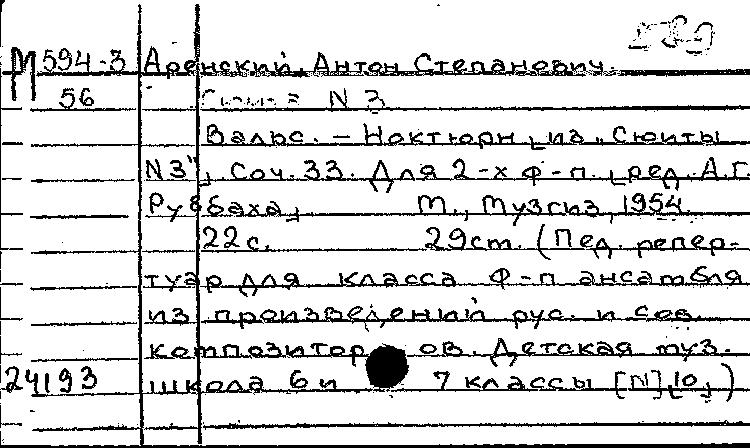 М 594-3 Аренский, Антон Степанович.
56 N 3
Вальс. – Ноктюрн [из „Сюиты
N3"], Соч. 33. Для 2-х ф-п. [ред. А.Г.
Руббаха]. М., Музгиз, 1954.
22 с. 29 см. (Пед. репер-
туар для класса Ф-п ансамбля
из произведений рус. и сов.
композиторов. Детская муз.
24193 школа 6 и 7 классы [N] [10])